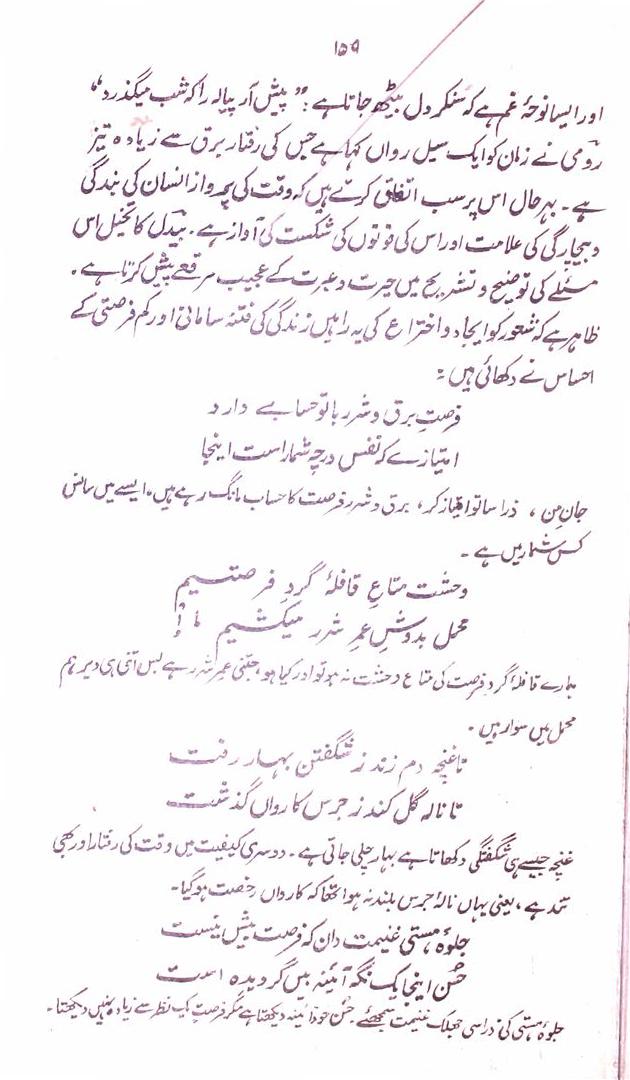 ۱۵۹
اور ایسا نوحۂ غم ہے کہ سنکر دل بیٹھ جاتا ہے: ”پیش آر پیالہ را کہ شب میگذرد“
رومی نے زمان کو ایک سیل رواں کہا ہے جس کی رفتار برق سے زیادہ تیز
ہے۔ بہرحال اس پر سب اتفاق کرتے ہیں کہ وقت کی پرواز انسان کی بندگی
و بیچارگی کی علامت اور اس کی قوتوں کی شکست کی آواز ہے۔ بیدل کا تخیل اس
مسئلے کی توضیح و تشریح میں حیرت و عبرت کے عجیب مرقعے پیش کرتا ہے۔
ظاہر ہے کہ شعور کو ایجاد و اختراع کی یہ راہیں زندگی کی فتنہ سامانی اور کم فرصتی کے
احساس نے دکھائی ہیں:
فرصتِ برق و شرر با تو حسابے دارد
امتیازے کہ نفس درچہ شمار است اینجا
جانِ من، ذرا سا تو امتیاز کر، برق و شرر فرصت کا حساب مانگ رہے ہیں۔ ایسے میں سانس
کس شمار میں ہے۔
وحشت متاعِ قافلۂ گردِ فرصتیم
محمل بدوشِ عمرِ شرر میکشیم ما
ہمارے قافلۂ گردِ فرصت کی متاع وحشت نہ ہو تو اور کیا ہو، جتنی عمرِ شرر ہے بس اتنی ہی دیر ہم
محمل میں سوار ہیں۔
تا غنچہ دم زند ز شگفتن بہار رفت
تا نالہ گل کند ز جرس کارواں گذشت
غنچہ جیسے ہی شگفتگی دکھاتا ہے بہار چلی جاتی ہے۔ دوسری کیفیت میں وقت کی رفتار اور بھی
تند ہے، یعنی یہاں نالۂ جرس بلند نہ ہوا تھا کہ کارواں رخصت ہو گیا۔
جلوۂ ہستی غنیمت داں کہ فرصت بیش نیست
حُسن اینجا یک نگہ آئینہ بیں گردیدہ است
جلوۂ ہستی کی ذرا سی جھلک غنیمت سمجھئے۔ حُسن خود آئینہ دیکھتا ہے مگر فرصت یک نظر سے زیادہ نہیں دیکھتا۔